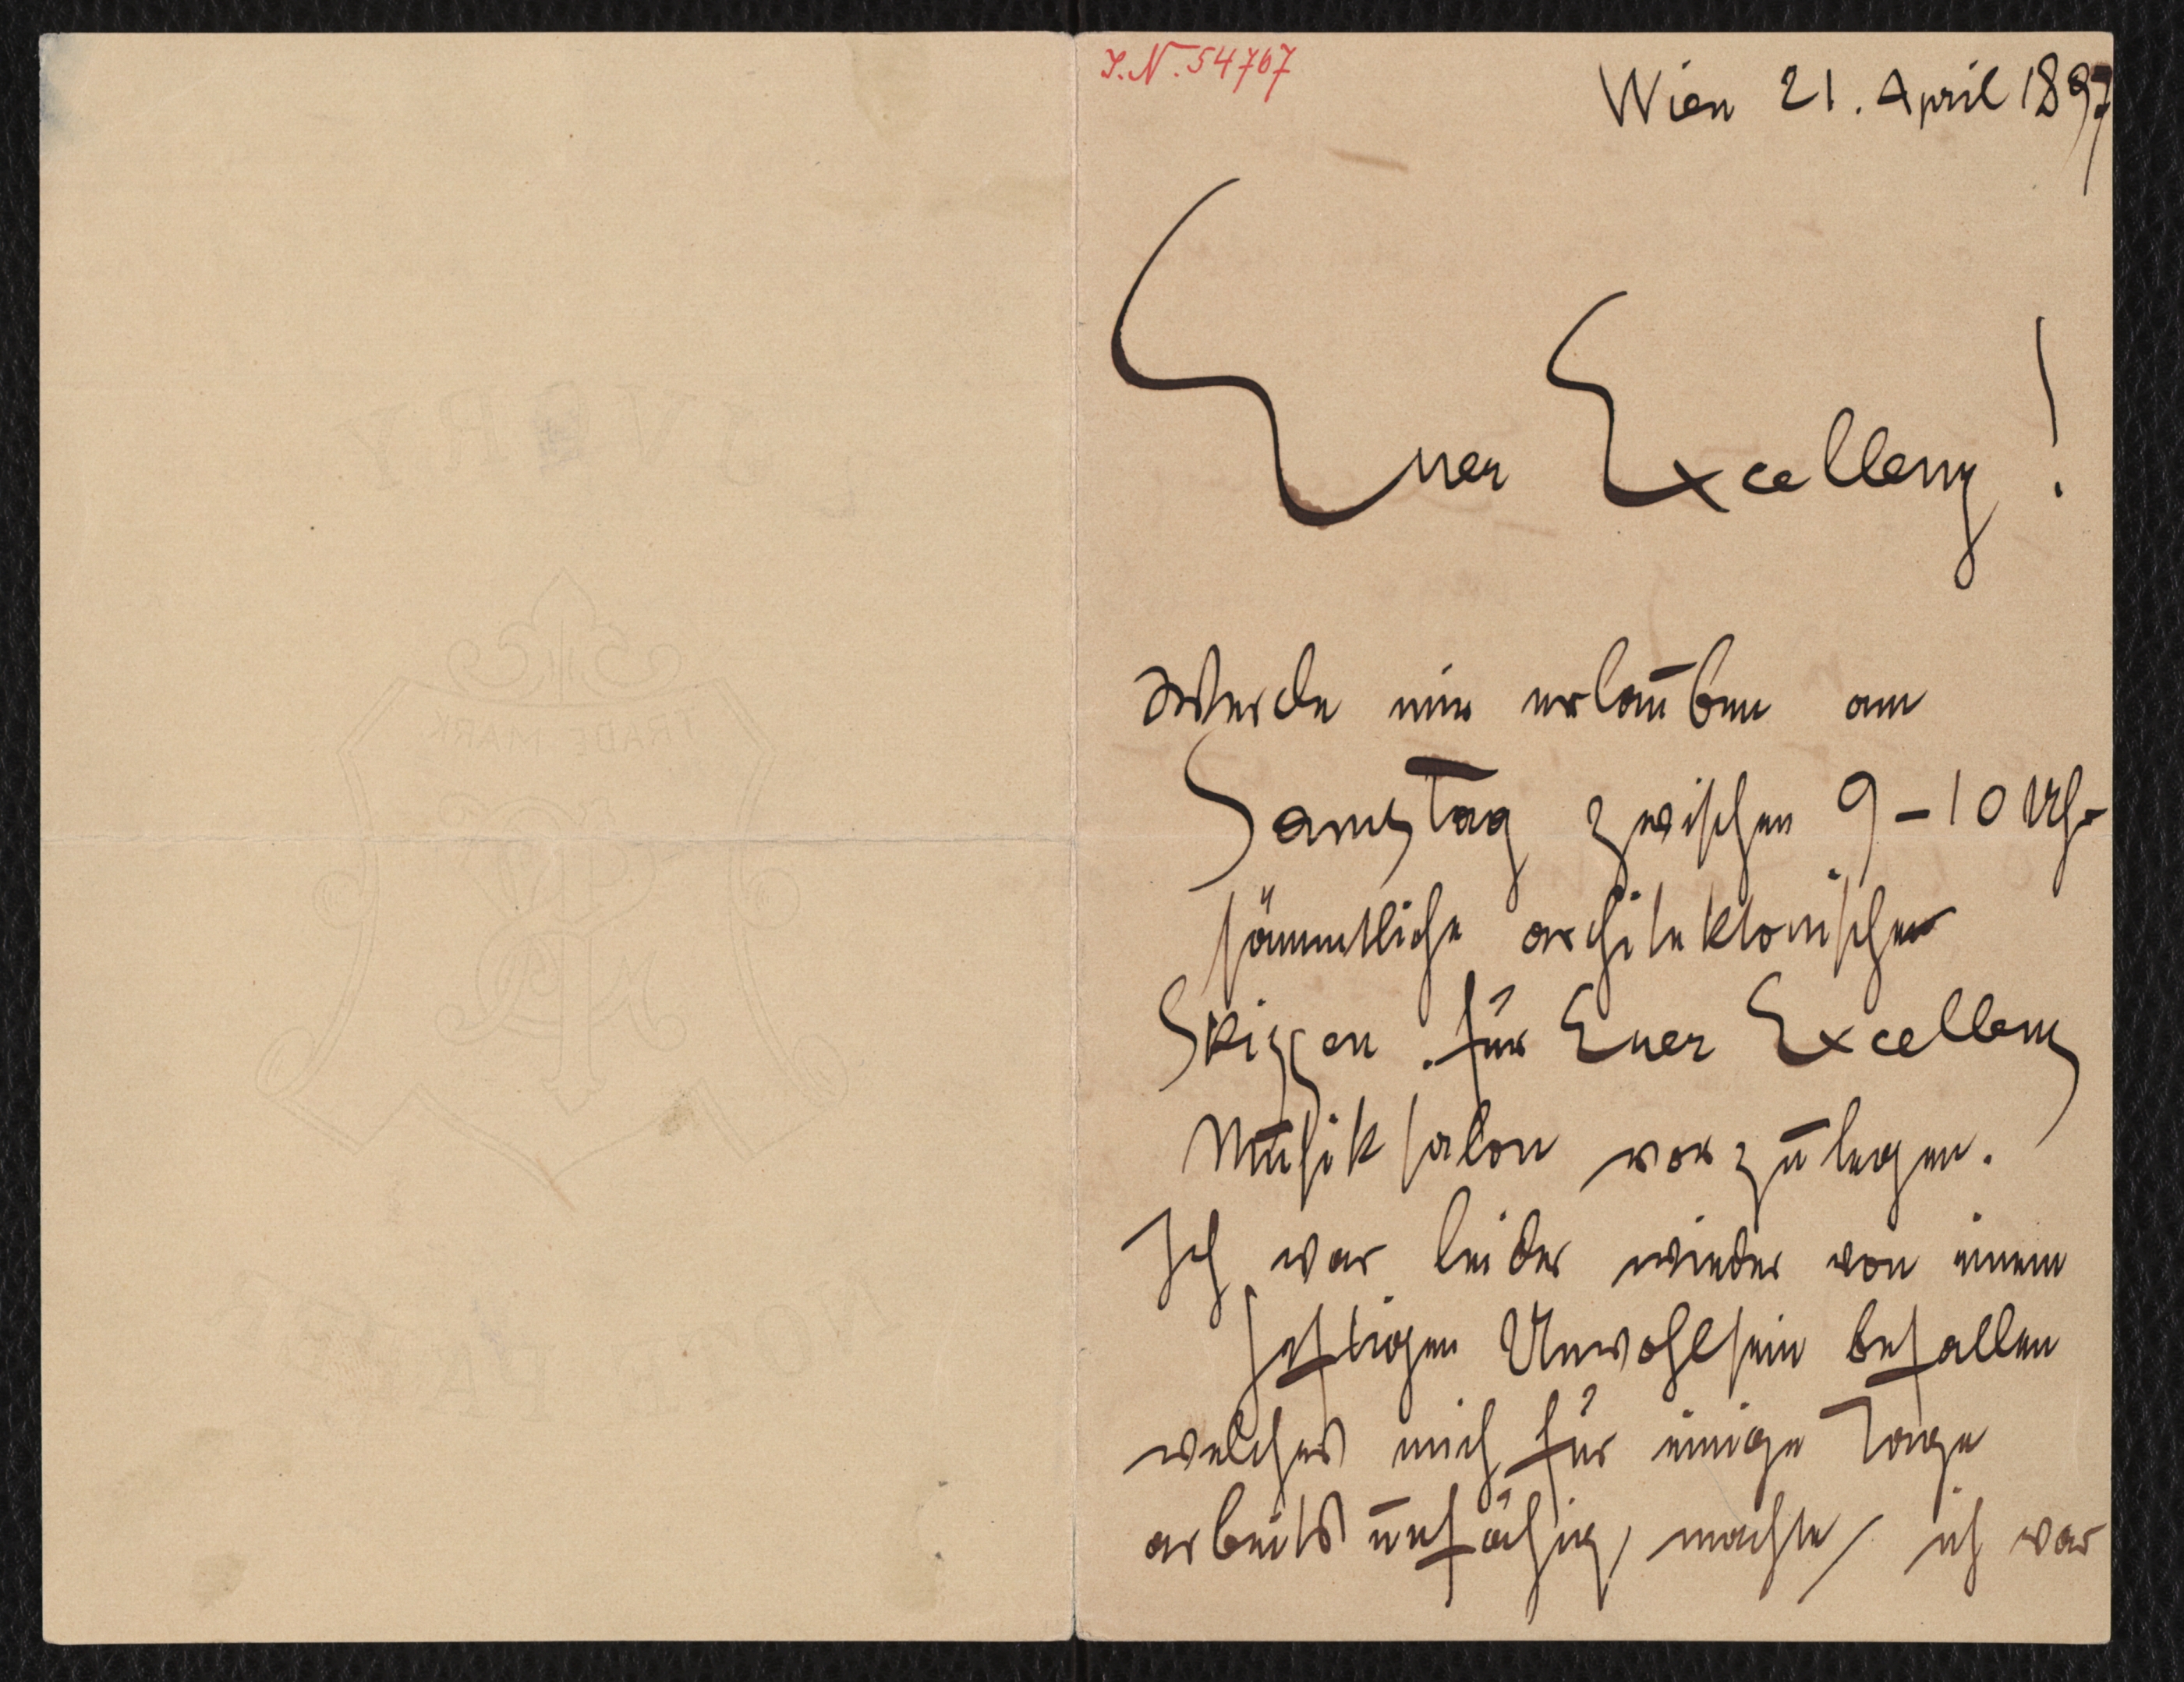 J.N. 54767
Wien 21. April 1897
Euer Excellenz!
Werde mir erlauben am
Samstag zwischen 9-10 Uhr
sämmtliche architektonischen
Skizzen für Euer Excellenz
Musiksalon vorzulegen.
Ich war leider wieder von einem
heftigen Unwohlsein befallen
welches mich für einige Tage
arbeitsunfähig, machte, ich war
TRADE MARK